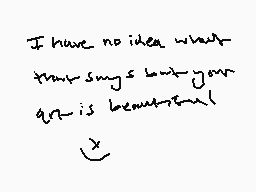 I have no idea what
that says but your
art is beautiful